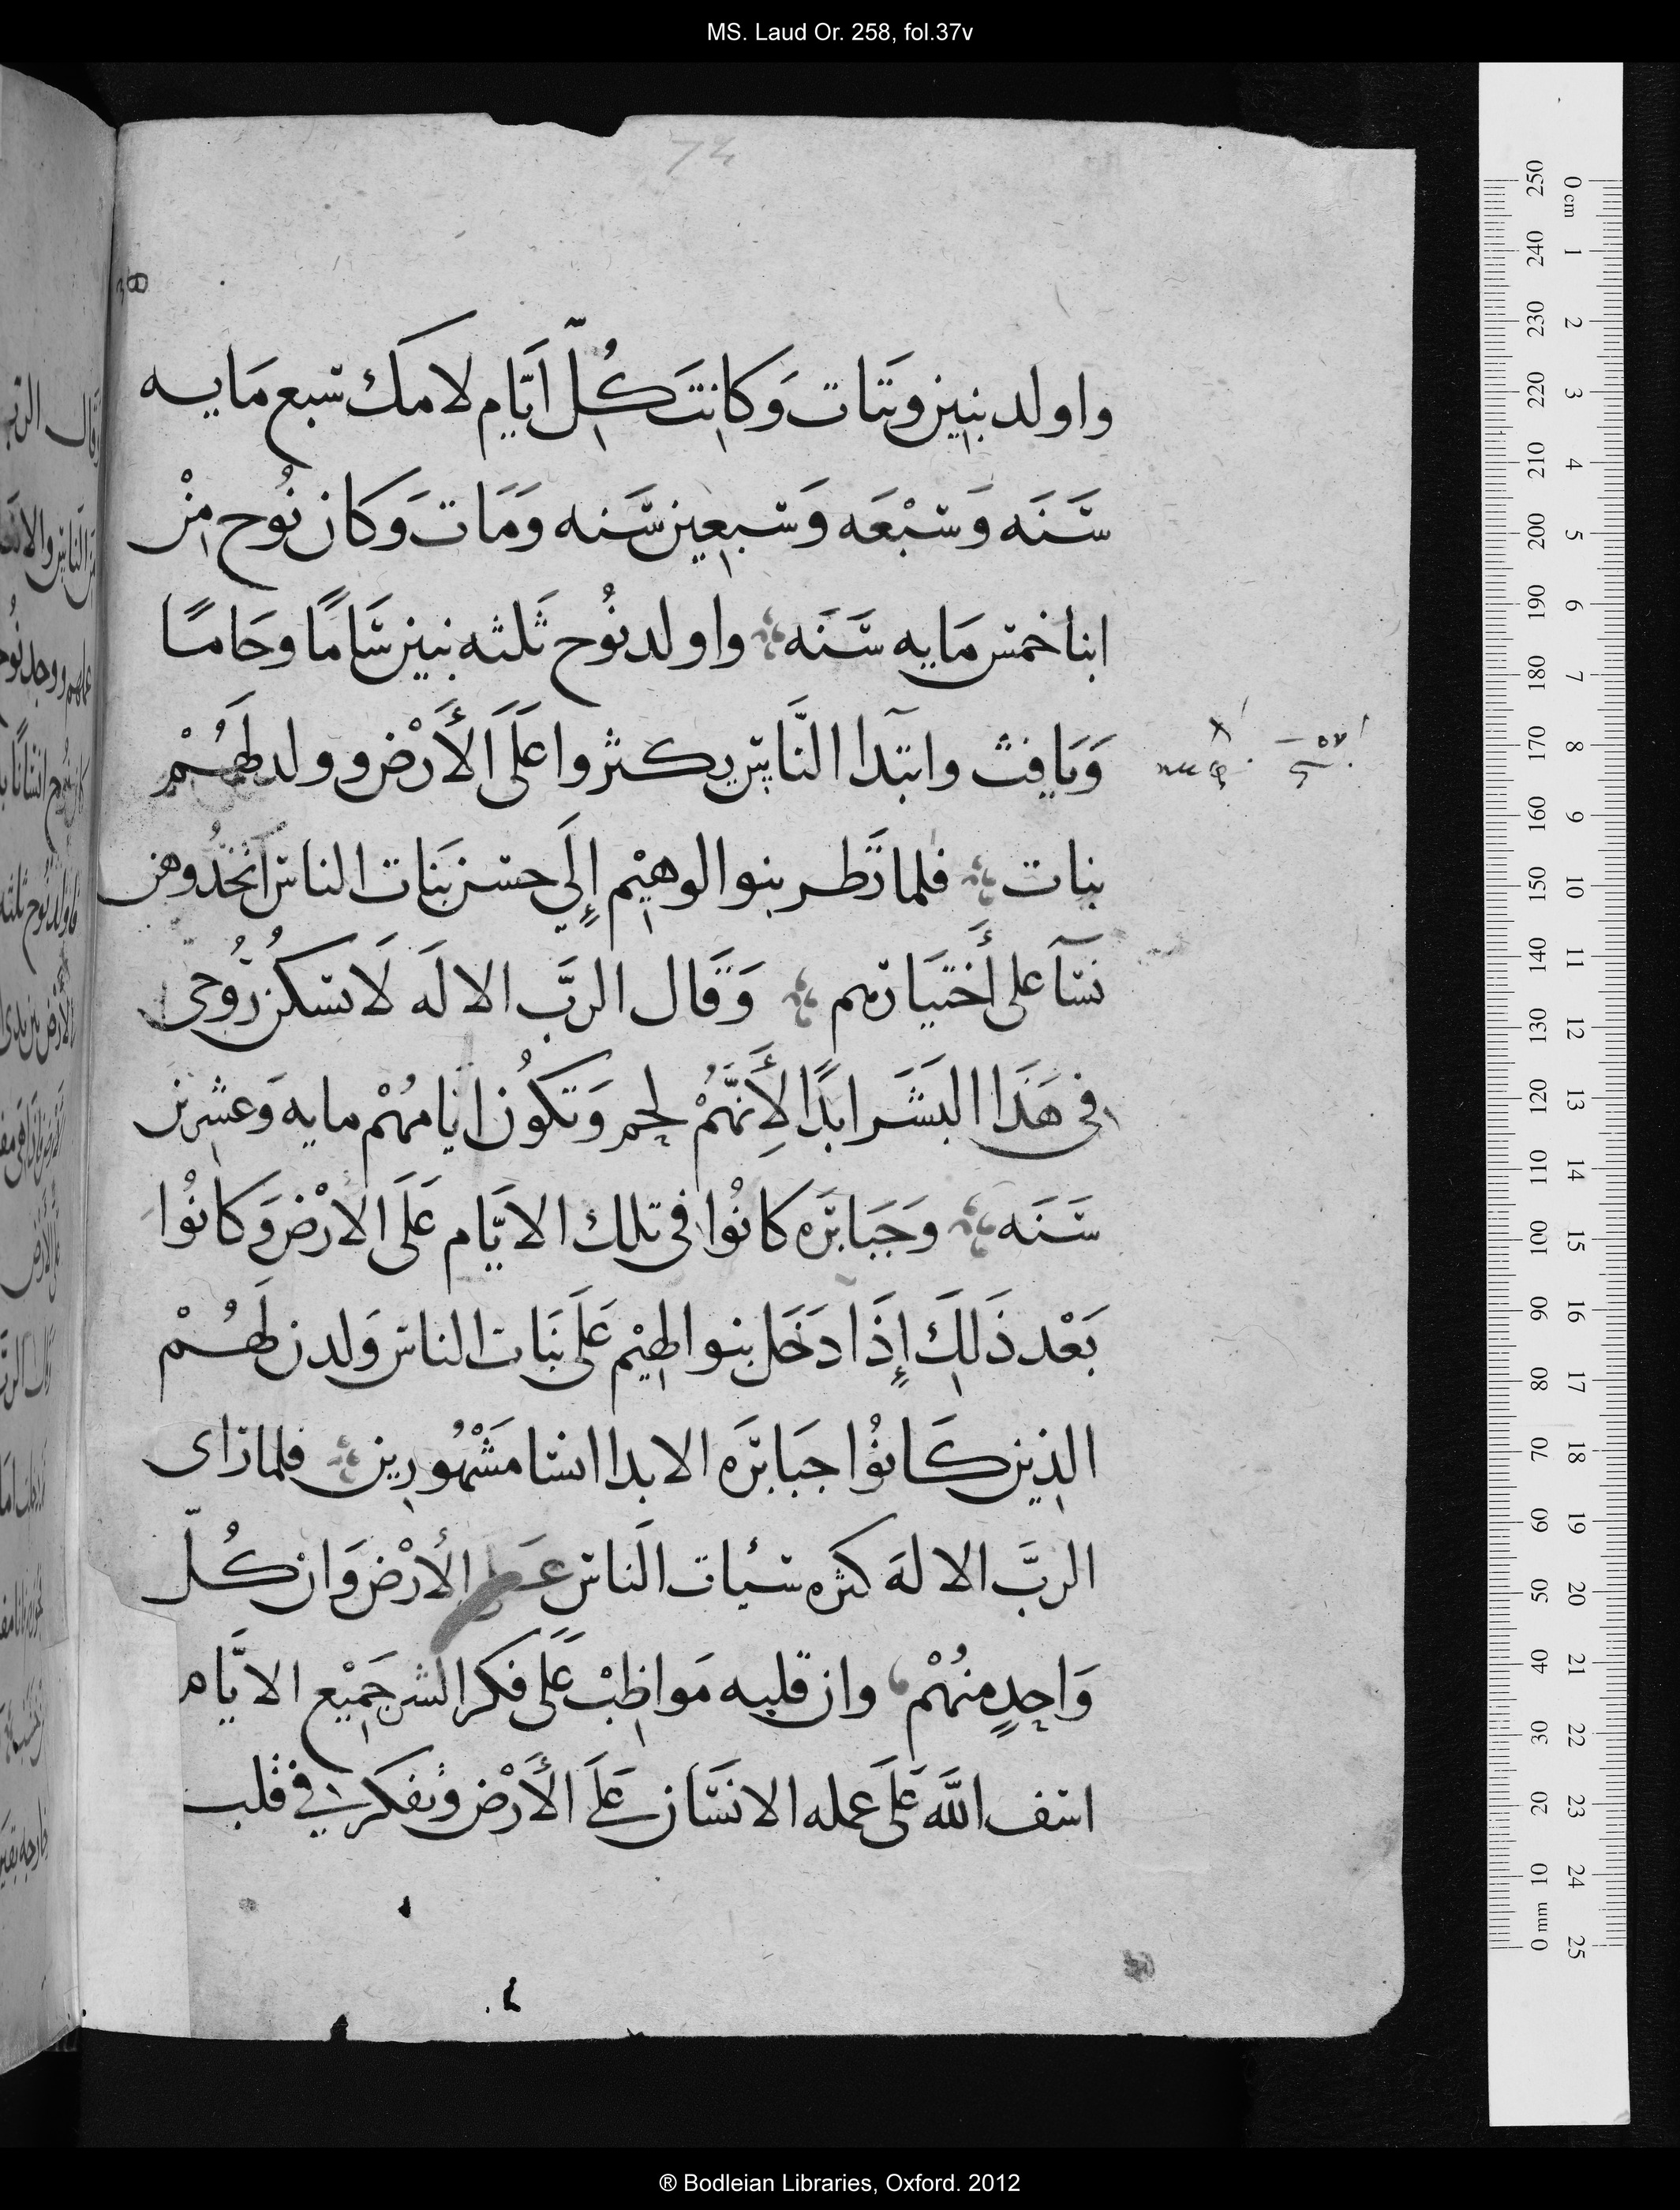 MS. Laud Or. 258, fol.37v
74
واولد بنين وبنات وَكانت كُلّ ايّام لامك سبع مَايه
سَنَه وَسَبْعَه وَسبعين سَنه وَمَات وَكان نُوح مِنْ
ابنا خمس مَايه سَنَه واولد نُوح ثلثه بنين سَامًا وحَامًا
وَيَافث وابتدا النَّاس يكثروا عَلَى الأَرْض وولد لهُمْ
بنات فلما نَظر بنوا الوهيْم إِلَي حسن بَنات الناس اتخذُوهن
نسَآ على أَختيَارهم وَقَال الربَّ الالَه لَا تسكن رُوحي
في هَذَا البَشَر ابدًا لِأَنَّهُمْ لحم وَتكُون ايامهُمْ مايه وَعشرين
سَنَه وَجَبَابرَه كانُوا في تلك الايَّام عَلَى الارْض وَكانُوا
بَعْد ذَلِكَ إِذَا دَخَل بنوا لهيْم عَلَى بَنات الناس وَلدن لهُمْ
الذين كَانُوا جَبَابرَه الابد انسا مَشْهُورِين فلما راى
الربَّ الالهَ كثره سيئات النَاس على الأرْض وَان كُلّ
وَاحِدٍ منهُمْ وان قلبه مَواظِبْ عَلى فكر الشر جَمِيْع الايَّام
اسف اللَّه عَلَى عمله الانسَان عَلَى الأَرْض وتفكر في قلب
® Bodleian Libraries, Oxford. 2012